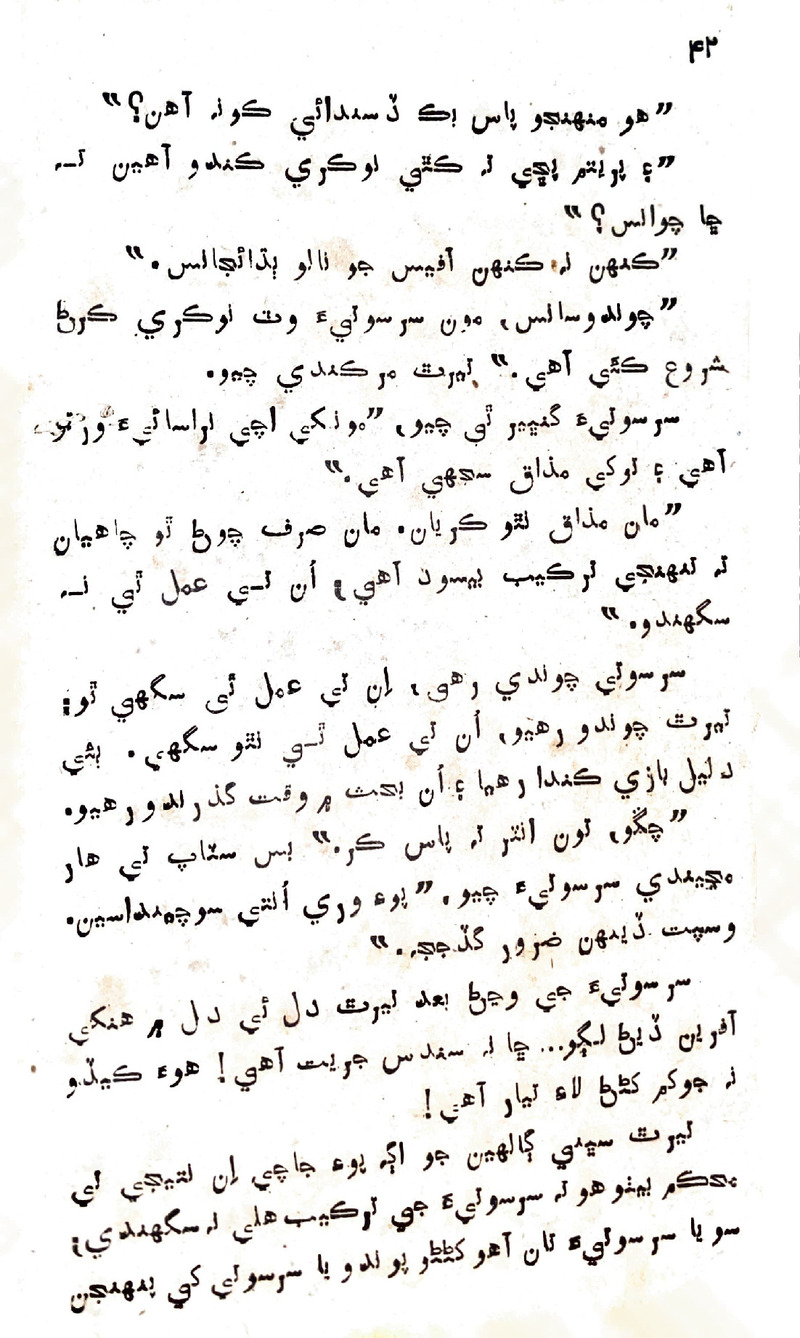 ۴۲
”هو منهنجو پاس بڪ ڏسندائي ڪونہ آهن؟“
”۽ پريتم پڇي تہ ڪٿي نوڪري ڪندو آهين تـہ
ڇا چوانس؟“
”ڪنهن نہ ڪنهن آفيس جو نالو ٻڌائجانس.“
”چوندوسانس، مون سرسوتيءَ وٽ نوڪري ڪرڻ
شروع ڪئي آهي.“ تيرٿ مرڪندي چيو.
سرسوتيءَ گنڀير ٿي چيو، ”مونکي اچي نراسائيءَ ورتو
آهي ۽ توکي مذاق سجهي آهي.“
”مان مذاق نٿو ڪريان. مان صرف چوڻ ٿو چاهيان
تہ تنهنجي ترڪيب بيسود آهي؛ اُن تـي عمل ٿي نـہ
سگهندو.“
سرسوتي چوندي رهي، اِن تي عمل ٿي سگهي ٿو؛
تيرٿ چوندو رهيو، اُن تي عمل ٿـي نٿو سگهي. ٻئي
دليل بازي ڪندا رهيا ۽ اُن بحث ۾ وقت گذرندو رهيو.
”چڱو، تون انٽر تہ پاس ڪر.“ بس سٽاپ تي هار
مڃيندي سرسوتيءَ چيو. ”پوءِ وري اُنتي سوچينداسين.
وسپت ڏينهن ضرور گڏجج.“
سرسوتيءَ جي وڃڻ بعد تيرٿ دل ئي دل ۾ هنکي
آفرين ڏيڻ لڳو... ڇا تہ سندس جريت آهي! هوءَ ڪيڏو
نہ جوکم کڻڻ لاءِ تيار آهي!
تيرٿ سڀني ڳالهين جو اڳ پوءِ جاچي اِن نتيجي تي
محڪم بيٺو هو تہ سرسوتيءَ جي ترڪيب هلي نہ سگهندي؛
سو يا سرسوتيءَ تان آهو کڻڻو پوندو يا سرسوتي کي پنهنجن